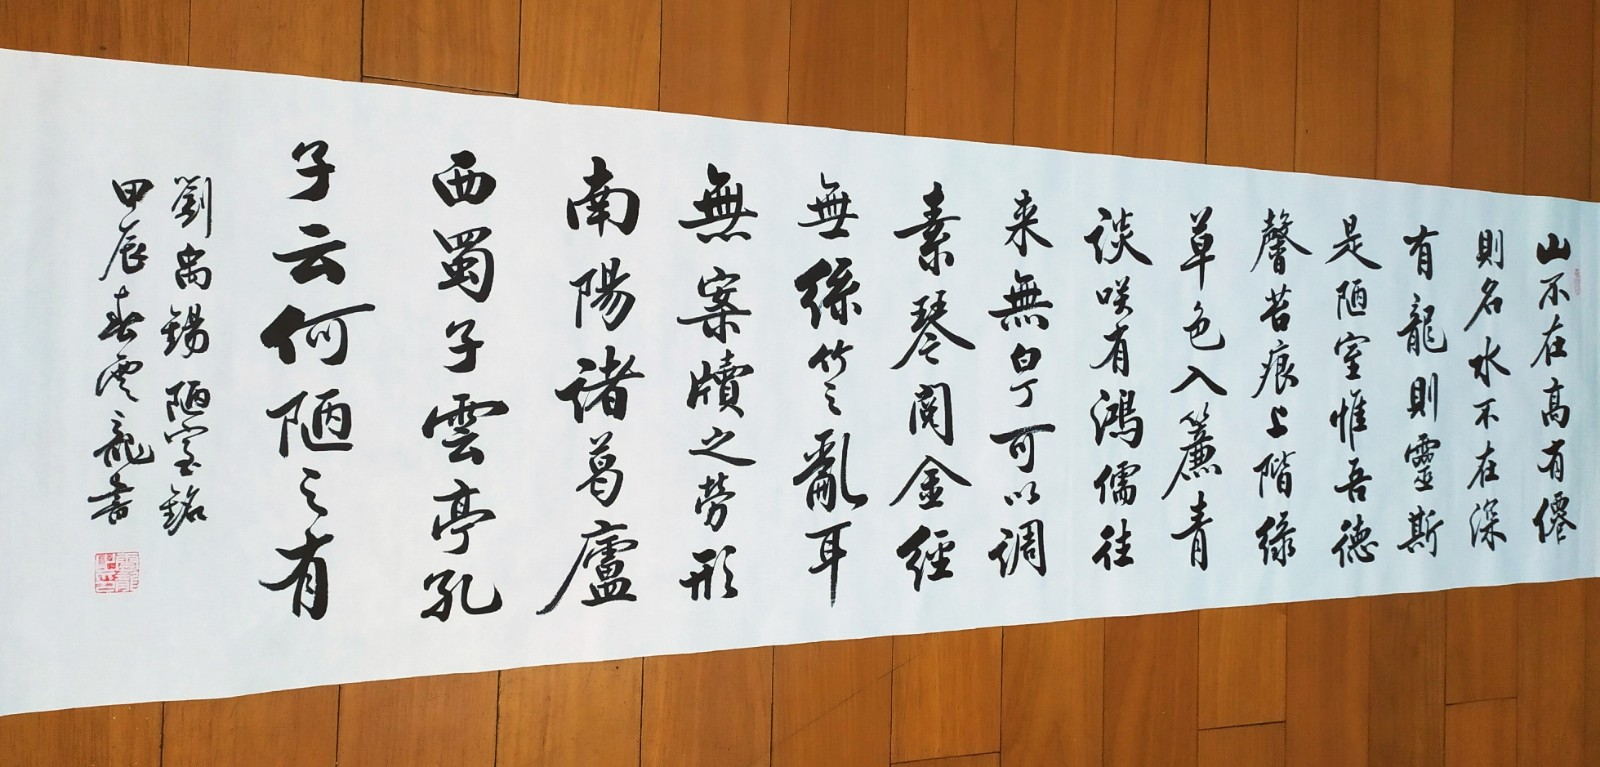 山不在高有僊
則名水不在深
有龍則靈斯
是陋室惟吾德
馨苔痕上階綠
草色入簾青
談咲有鴻儒往
来無白丁可以調
素琴閱金經
無絲竹之亂耳
無案牘之勞形
南陽諸葛廬
西蜀子雲亭孔
子云何陋之有
劉禹錫陋室銘
甲辰春雲龍書